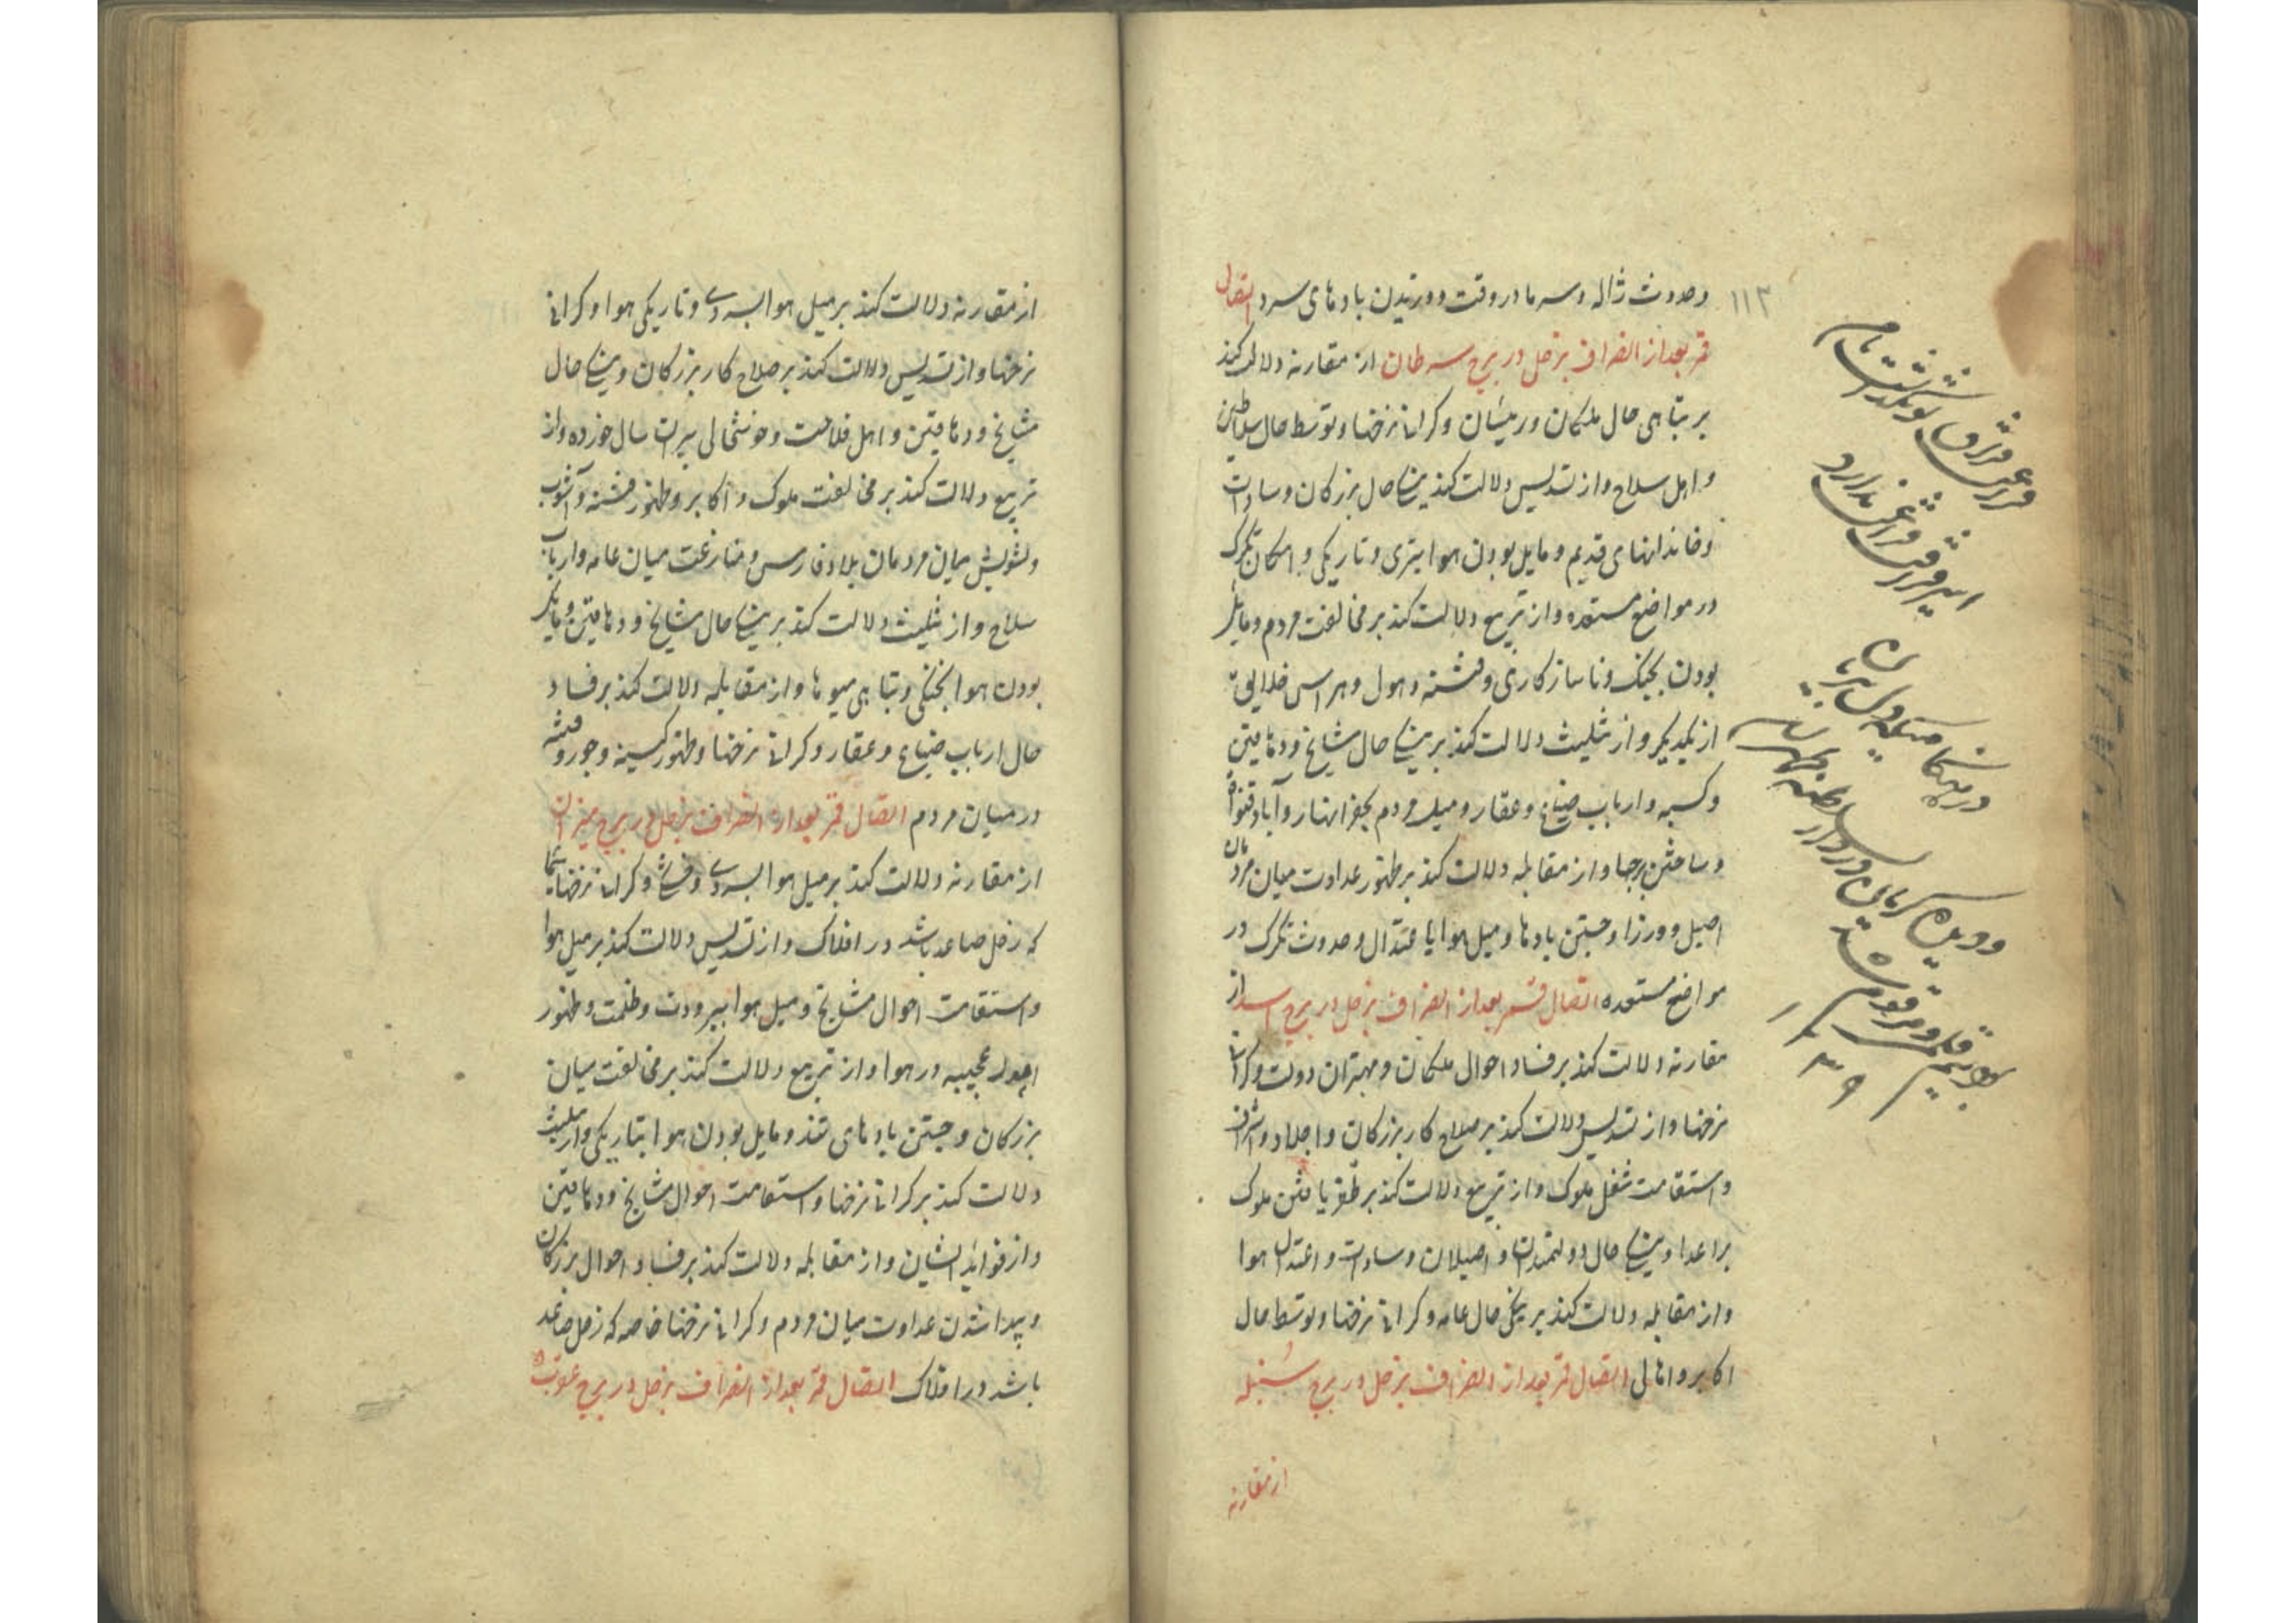 وحدوث ژاله و سرما در وقت و وزیدن بادهای سرد اتصال
قمر بعد از انصراف بزحل در برج سرطان از مقارنه دلالت کند
بر تباهی حال ملکان و رییسان و کرانی نرخها و توسط حال سلاطین
و اهل سلاح و از تسدیس دلالت کند بنیکی حال بزرکان و سادات
و خاندانهای قدیم و مایل بودن هوا بتری و تاریکی و امکان تکرک
در مواضع مستعده و از تربیع دلالت کند بر مخالفت مردم و مایل
بودن بجنک و ناسازکاری و فتنه و هول و هراس خلایق
از یکدیکر و از تثلیث دلالت کند بر نیکی حال مشایخ و دهاقین
و کسبه و ارباب ضیاع و عقار و میل مردم بحفر انهار و آباد قنوات
و ساختن برجها و از مقابله دلالت کند بر ظهور عداوت میان مردمان
اصیل و ورزا و جستن بادها و میل هوا با عتدال و حدوث تکرک در
مواضع مستعده اتصال قمر بعد از انصراف بزحل در برج اسد از
مقارنه دلالت کند بر فساد احوال ملکان و مهتران دولت و کرانی
نرخها و از تسدیس دلالت کند بر صلاح کار بزرکان و اجلاد و اشراف
و استقامت شغل ملوک و از تربیع دلالت کند بر ظفر یافتن ملوک
بر اعدا و نیکی حال دولتمندان و اصیلان و سادات و اعتدال هوا
و از مقابله دلالت کند بر نیکی حال عامه و کرانی نرخها و توسط حال
اکابر و اهالی اتصال قمر بعد از انصراف بزحل در برج سنبله
از مقارنه
۱۱۳
در هنکامیکه
از مقارنه دلالت کند بر میل هوا بسردی و تاریکی هوا و کرانی
نرخها و از تسدیس دلالت کند بر صلاح کار بزرکان و نیکی حال
مشایخ و دهاقین و اهل فلاحت و خوشحالی پیران سال خورده و از
تربیع دلالت کند بر مخالفت ملوک و اکابر و ظهور فتنه و آشوب
و تشویش میان مردمان بلاد فارس و منازعت میان عامه و ارباب
سلاح و از تثلیث دلالت کند بر نیکی حال مشایخ و دهاقین و مایل
بودن هوا بخنکی و تباهی میوها و از مقابله دلالت کند بر فساد
حال ارباب ضیاع و عقار و کرانی نرخها و ظهور کسینه و جور و فتنه
در میان مردم اتصال قمر بعد از انصراف بزحل در برج میزان
از مقارنه دلالت کند بر میل هوا بسردی و خشکی و کرانی نرخها سیما
که زحل صاعد باشد در افلاک و از تسدیس دلالت کند بر میل هوا
و استقامت احوال مشایخ و میل هوا ببرودت و ظلمت و ظهور
احوال عجیبه در هوا و از تربیع دلالت کند بر مخالفت میان
بزرکان و جستن بادهای تند و مایل بودن هوا بتاریکی و از تثلیث
دلالت کند بر کرانی نرخها و استقامت احوال مشایخ و دهاقین
و از فواید ایشان و از مقابله دلالت کند بر فساد احوال بزرکان
و پیدا شدن عداوت میان مردم و کرانی نرخها خاصه که زحل صاعد
باشد در افلاک اتصال قمر بعد از انصراف بزحل در برج عقرب